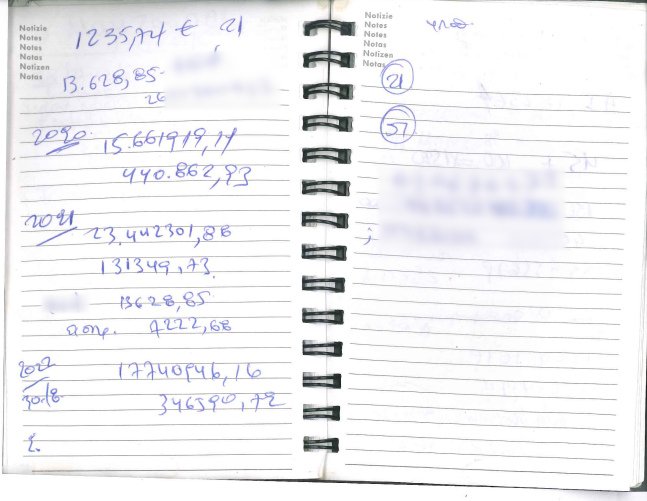 Notizie
Notes
Notes
Notas
Notizen
Notas
1235,74 € 21
13.628,85
26
2020 15.661919,14
440.862,93
2021
23.442301,88
131349,73
13628,85
7222,68
2022 17740946,16
30/8 346590,72
Notizie
Notes
Notes
Notas
Notizen
Notas
21
51
;